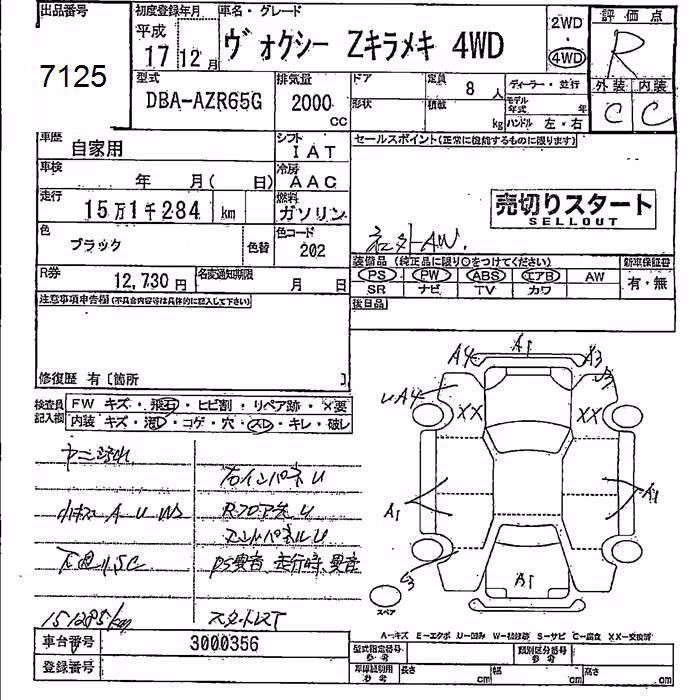 出品番号
7125
初度登録年月
平成
17 12月
車名・グレード
ヴォクシー Zキラメキ 4WD
2WD
・
4WD
評価点
R
外装 内装
C C
型式
DBA-AZR65G
排気量
2000
cc
ドア
形状
定員
8人
積載
kg
ディーラー・並行
モデル年式 年
ハンドル 左・右
車歴
自家用
シフト
IAT
セールスポイント(正常に機能するものに限ります)
車検
年 月( 日)
冷房
AAC
走行
15万1千284 km
燃料
ガソリン
売切りスタート
SELLOUT
色
ブラック
色替
色コード
202
社外AW.
装備品(純正品に限り○をつけてください)
新車保証書
PS PW ABS エアB AW
有・無
SR ナビ TV カワ
R券
12,730円
名変通知期限
月 日
後日品
注意事項申告欄(不具合内容等は具体的に記入して下さい)
修復歴 有[箇所 ]
検査員記入欄
FW キズ・飛石・ヒビ割・リペア跡・×要
内装 キズ・汚レ・コゲ・穴・スレ・キレ・破レ
ヤニ汚れ
右インパネU
小キズAUW
RフロアえU
エンドパネルU
下回りSC
PS異音 走行時異音
151285km
スタットレスT
A4 A1 A3
UA4
XX XX
A1 A1
A1
スペア
A—キズ E—エクボ U—凹み W—補修跡 S—サビ C—腐食 XX—交換済
車台番号
3000356
登録番号
型式指定番号
参考
類別区分番号
参考
車庫証明用
参考
長さ cm
幅 cm
高さ cm